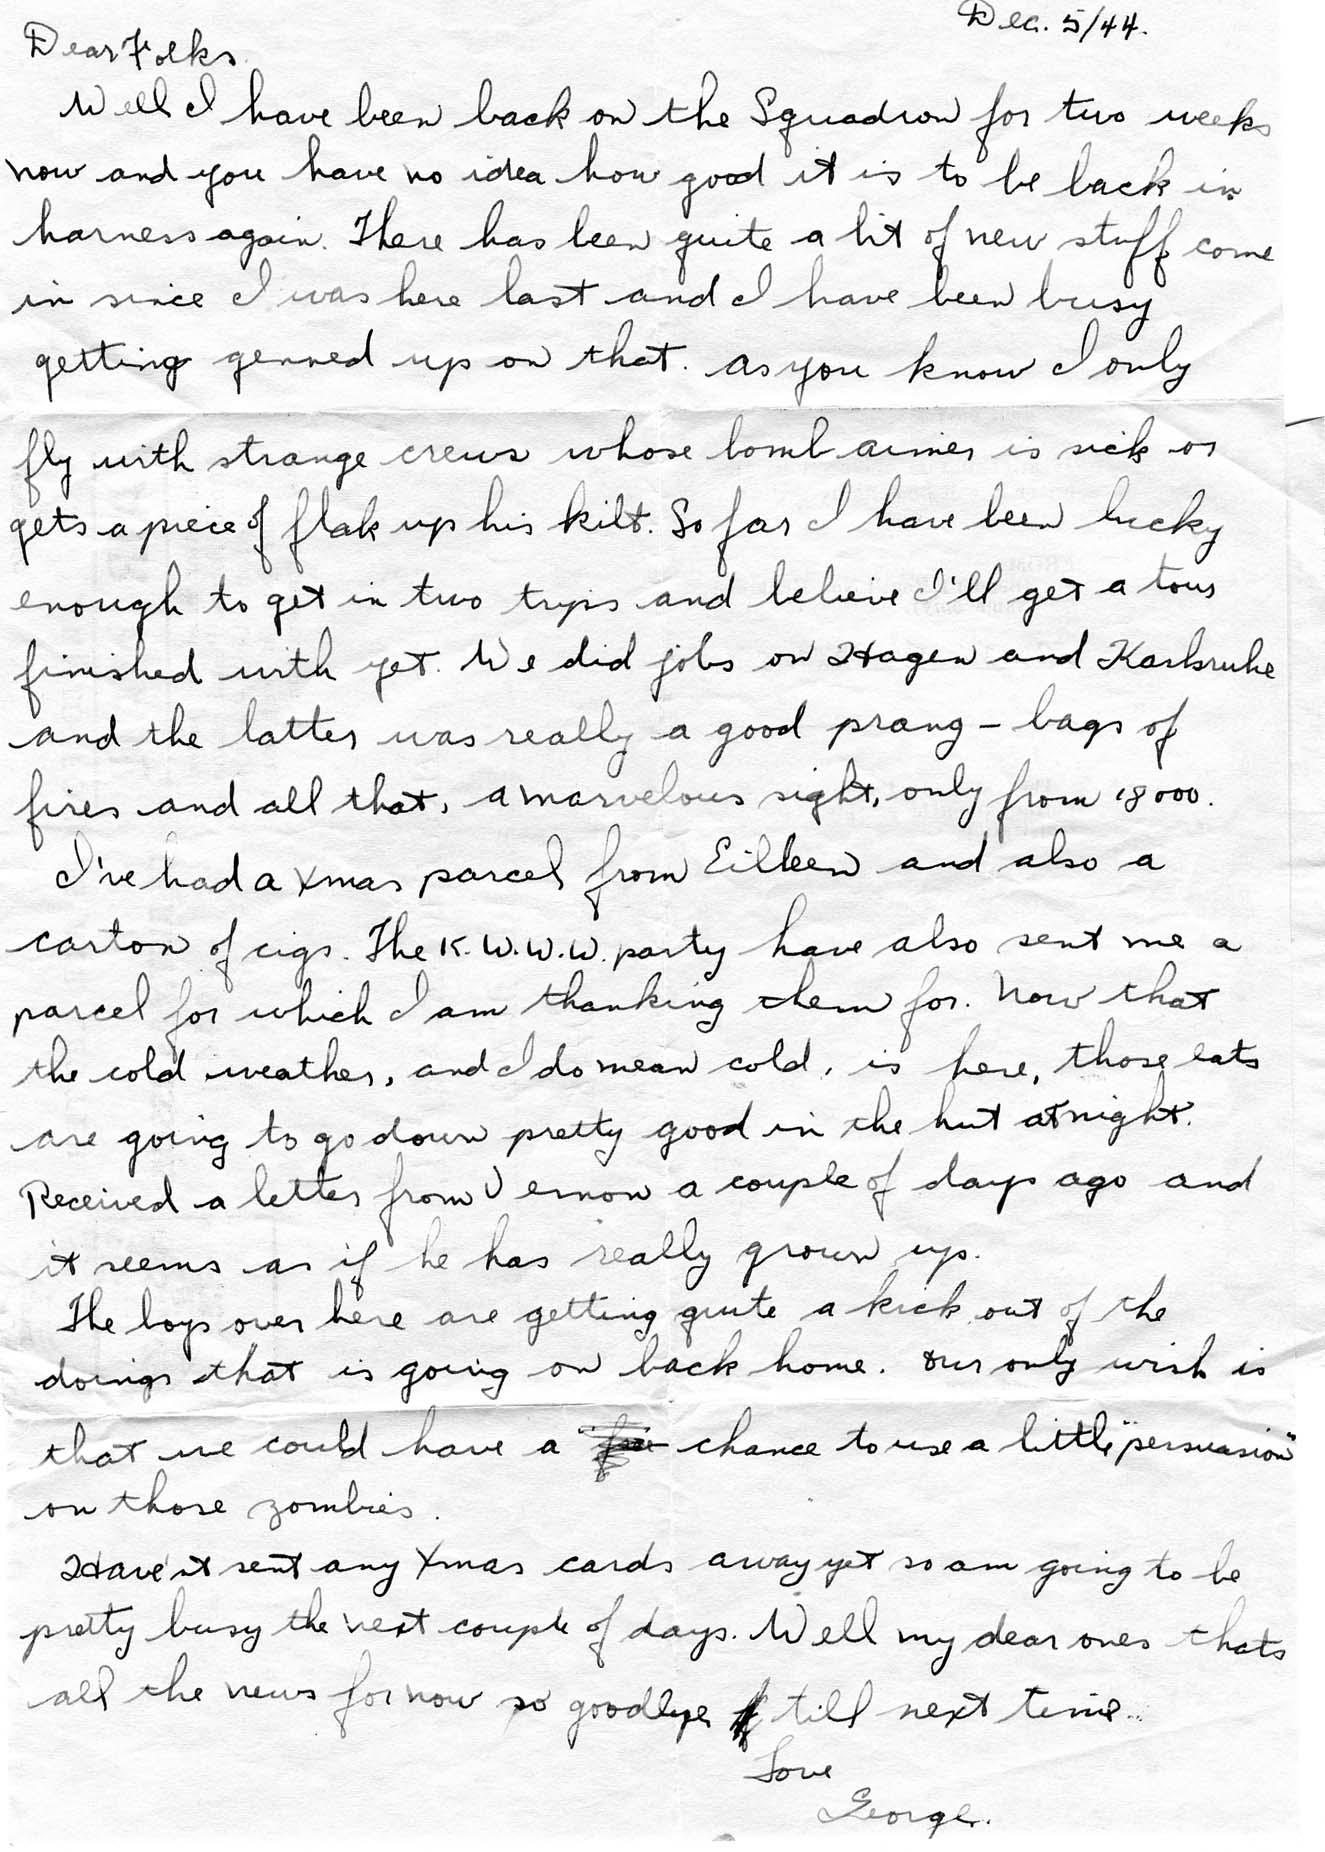 Dec. 5/44.
Dear Folks.
Well I have been back on the Squadron for two weeks
now and you have no idea how good it is to be back in
harness again. There has been quite a bit of new stuff come
in since I was here last and I have been busy
getting genned up on that. As you know I only
fly with strange crews whose bomb aimer is sick or
gets a piece of flak up his kilt. So far I have been lucky
enough to get in two trips and believe I'll get a tour
finished with yet. We did jobs on Hagen and Karlsruhe
and the latter was really a good prang - bags of
fires and all that, a marvelous sight, only from 18000.
I've had a Xmas parcel from Eileen and also a
carton of cigs. The K.W.W.W. party have also sent me a
parcel for which I am thanking them for. Now that
the cold weather, and I do mean cold, is here, those eats
are going to go down pretty good in the hut at night.
Received a letter from Vernon a couple of days ago and
it seems as if he has really grown up.
The boys over here are getting quite a kick out of the
doings that is going on back home. Our only wish is
that we could have a chance to use a little "persuasion"
on those zombies.
Have'nt sent any Xmas cards away yet so am going to be
pretty busy the next couple of days. Well my dear ones thats
all the news for now so goodbye till next time.
Love
George.